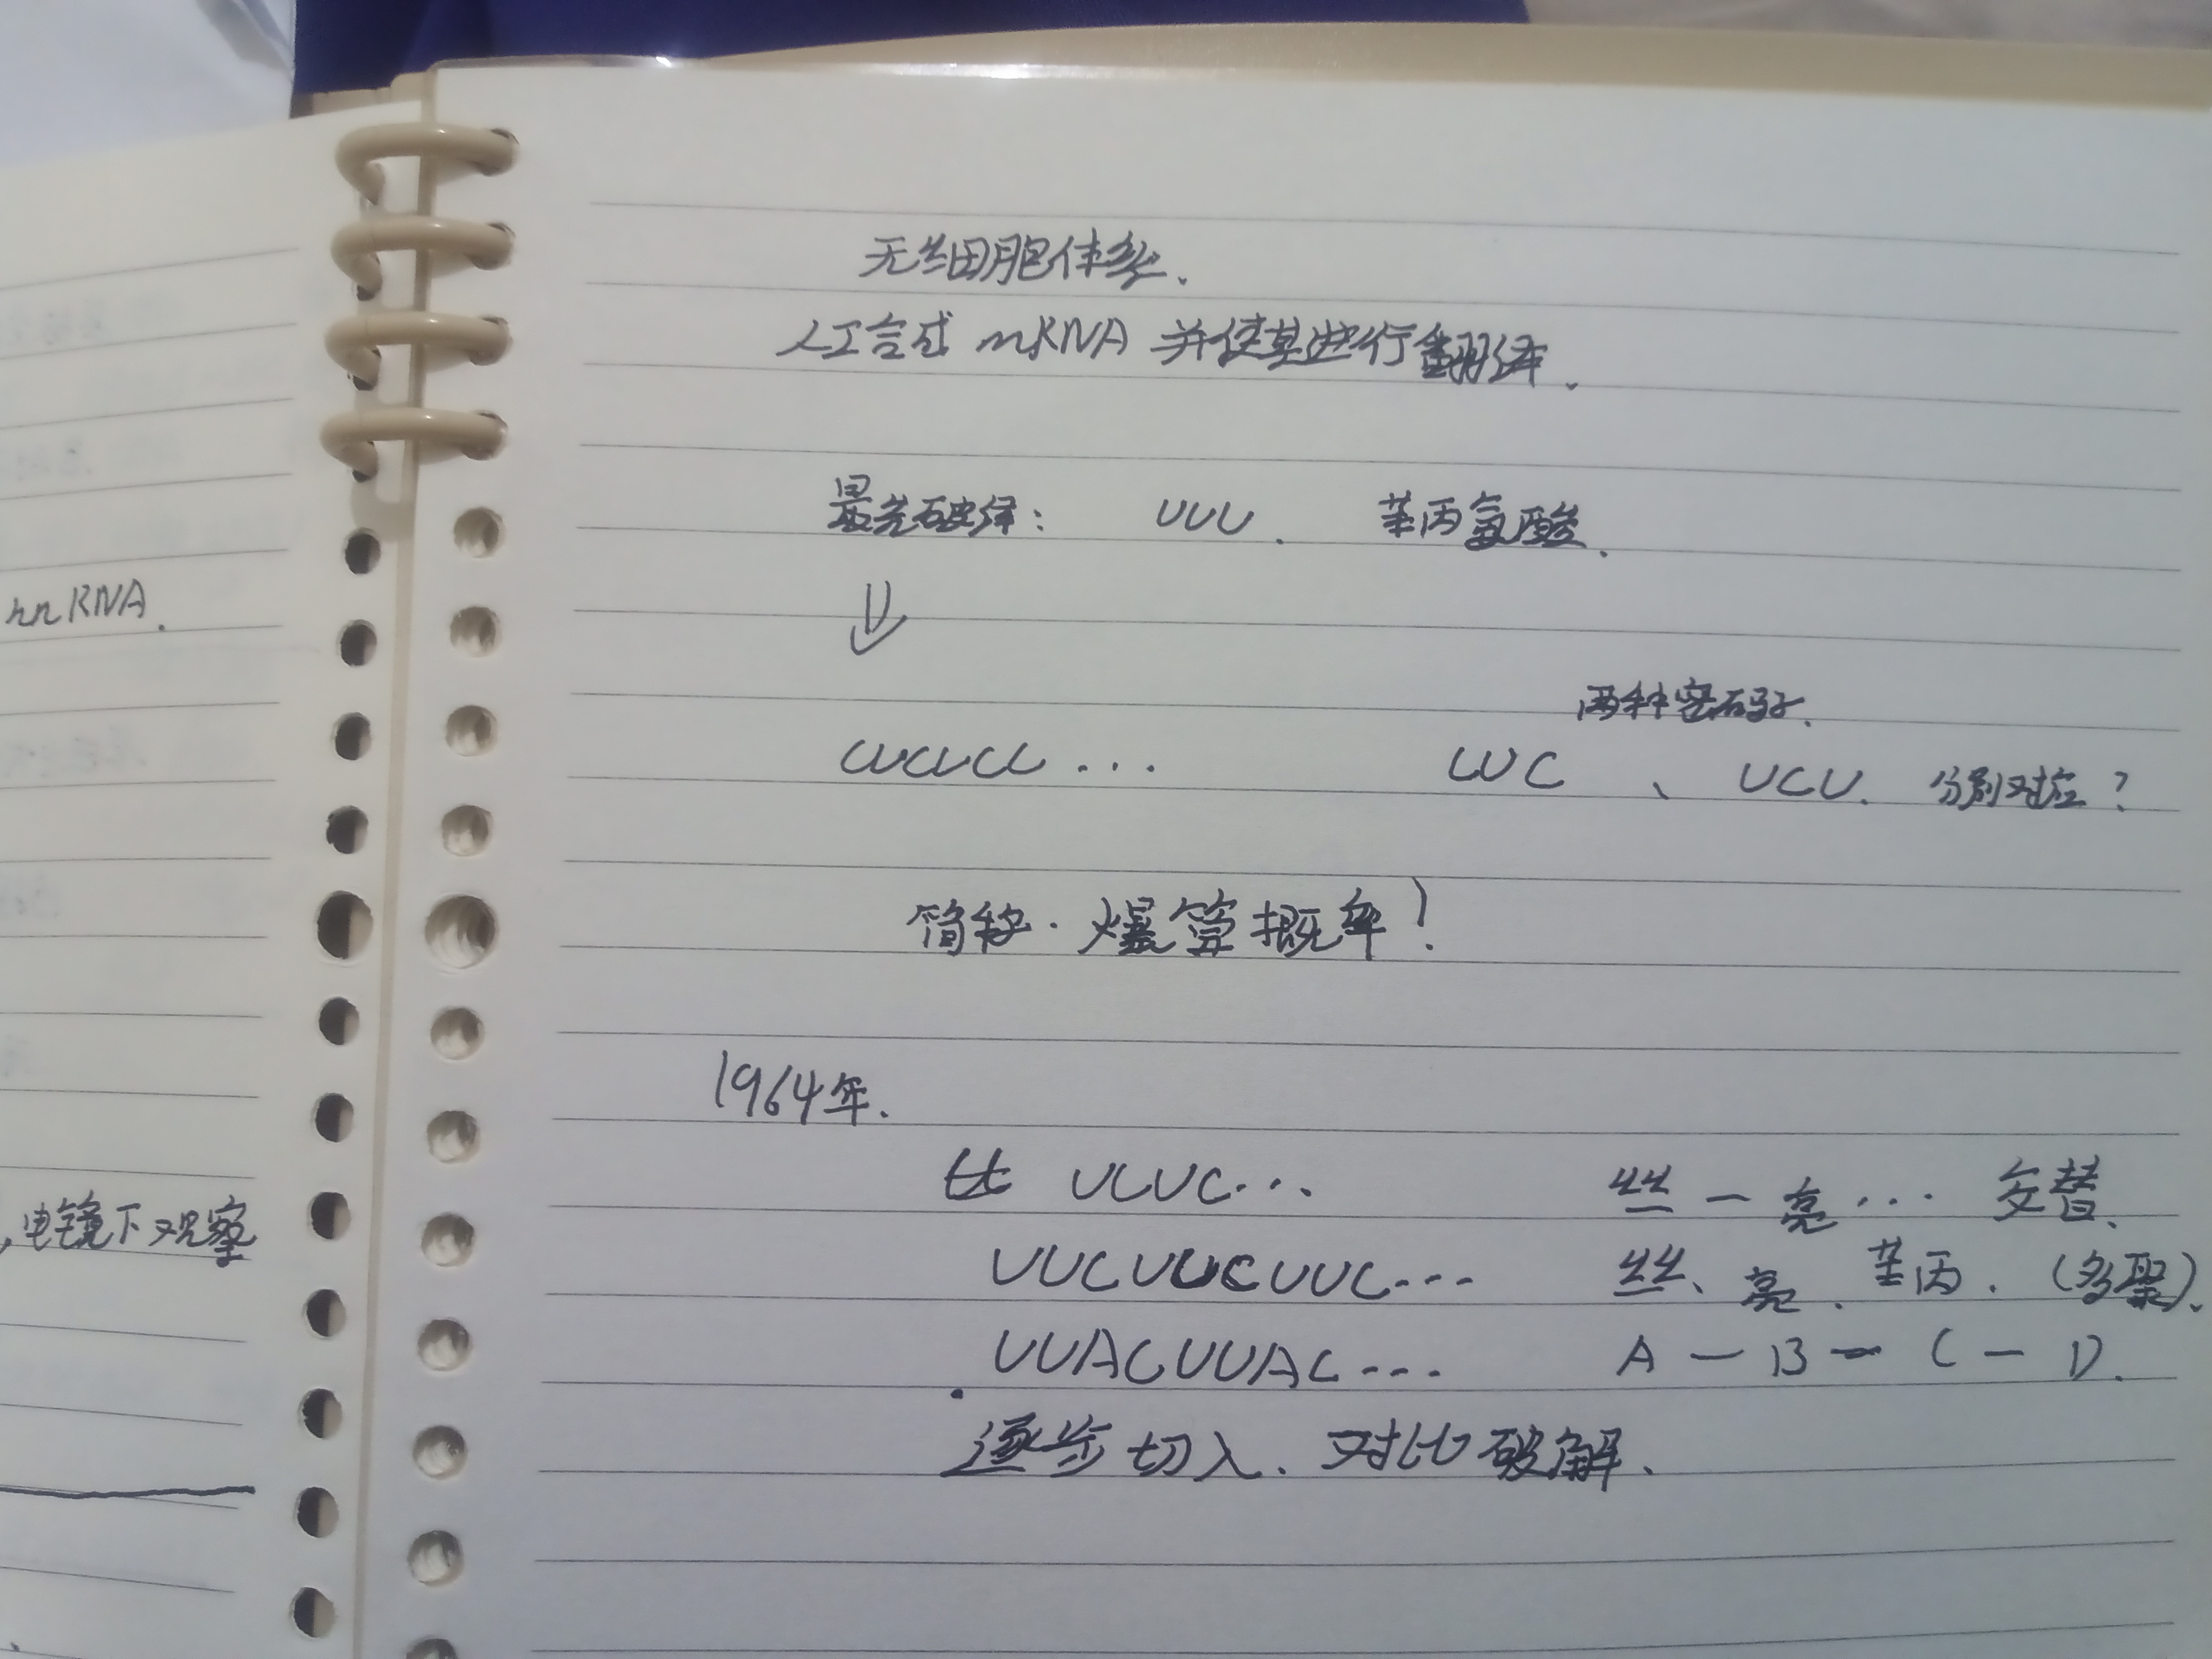 mRNA.
,电镜下观察
无细胞体系.
人工合成 mRNA 并使其进行翻译.
最先破译: UUU. 苯丙氨酸.
⇓
两种密码子.
CUCUCU... CUC 、 UCU. 分别对应?
简称·爆算概率!
1964年.
比 UCUC... 丝一亮... 交替.
UUCUUCUUC... 丝、亮、苯丙.(多聚).
UUACUUAC... A—B—C—D.
逐步切入.对比破解.